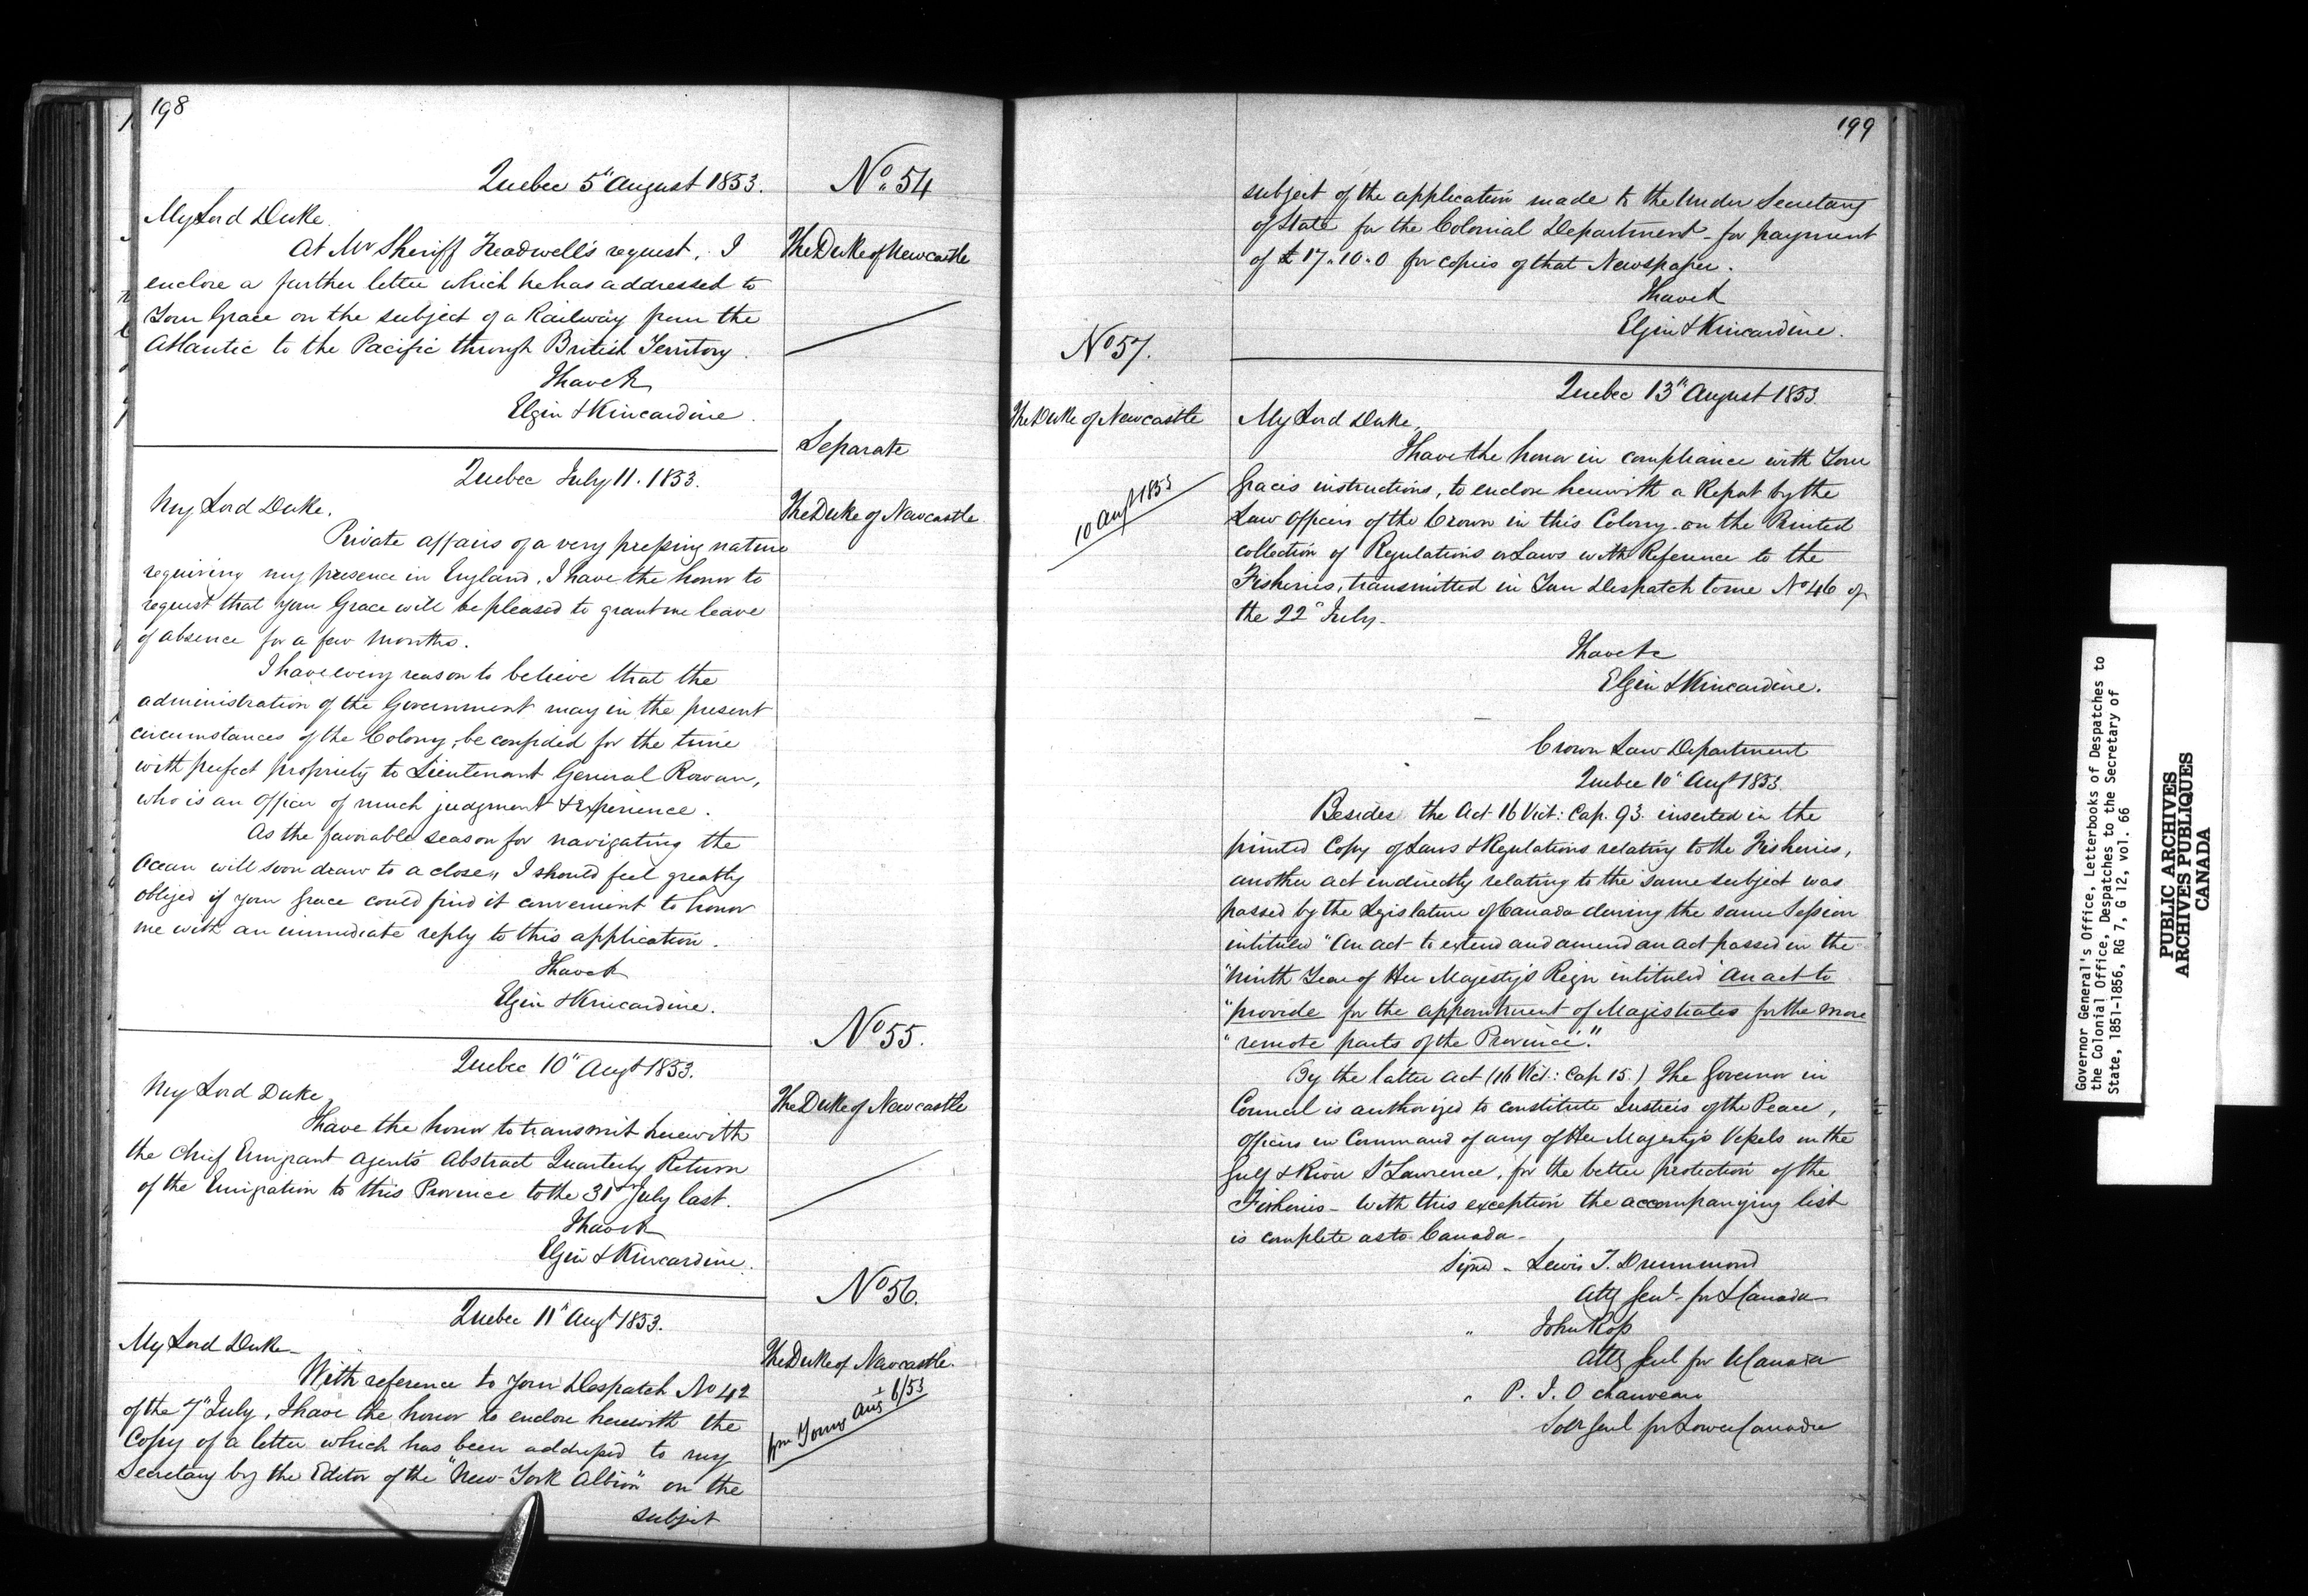 198
Quebec 5" August 1853.
No. 54
My Lord Duke.
The Duke of Newcastle
At Mr Sheriff Treadwell's request, I
enclose a further letter which he has addressed to
Your Grace on the subject of a Railway from the
Atlantic to the Pacific through British Territory.
I have &c
Elgin & Kincardine.
Separate
Quebec July 11. 1853.
My Lord Duke.
The Duke of Newcastle
Private affairs of a very pressing nature
requiring my presence in England, I have the honor to
request that your Grace will be pleased to grant me leave
of absence for a few months.
I have every reason to believe that the
administration of the Government may in the present
circumstances of the Colony, be confided for the time
with perfect propriety to Lieutenant General Rowan,
who is an Officer of much judgment & Experience.
As the favorable season for navigating the
Ocean will soon draw to a close, I should feel greatly
obliged if your Grace could find it convenient to honor
me with an immediate reply to this application.
I have &c
Elgin & Kincardine.
No 55.
Quebec 10" Augt 1853.
My Lord Duke,
The Duke of Newcastle
I have the honor to transmit herewith
the Chief Emigrant Agent's Abstract Quarterly Return
of the Emigration to this Province to the 31st July last.
I have &c
Elgin & Kincardine.
No 56.
Quebec 11" Augt 1853.
My Lord Duke_
The Duke of Newcastle.
With reference to your Despatch No 42
of the 7" July, I have the honor to enclose herewith the
Copy of a letter which has been addressed to my
Secretary by the Editor of the "New-York Albion" on the
Young Augt 6/53
subject
199
subject of the application made to the Under Secretary
of State for the Colonial Department for payment
of £17.10.0 for copies of that Newspaper.
I have &c
Elgin & Kincardine.
No 57.
Quebec 13" August 1853
The Duke of Newcastle
My Lord Duke,
I have the honor in compliance with Your
10 Augt 1853
Grace's instructions, to enclose herewith a Report by the
Law Officers of the Crown in this Colony on the Printed
collection of Regulations or Laws with Reference to the
Fisheries, transmitted in Your Despatch to me No 46 of
the 22" July_
I have &c
Elgin & Kincardine.
Crown Law Department
Quebec 10" Augt 1853.
Besides the Act 16 Vict: Cap. 93. inserted in the
printed Copy of Laws & Regulations relating to the Fisheries,
another act indirectly relating to the same subject was
passed by the Legislature of Canada during the same Session
intituled "An act to extend and amend an act passed in the
"Ninth Year of Her Majesty's Reign intituled 'An act to
"provide for the appointment of Magistrates for the more
"remote parts of the Province'."
By the latter act (16 Vict: Cap 15.) The Governor in
Council is authorized to constitute Justices of the Peace,
Officers in Command of any of Her Majesty's Vessels in the
Gulf & River St Lawrence, for the better protection of the
Fisheries_ With this exception the accompanying list
is complete as to Canada_
Signd _ Lewis T. Drummond
Atty Genl_ for L Canada
" John Ross
Atty Genl for U Canada
" P. J. O Chauveau
Solr Genl for Lower Canada
Governor General's Office, Letterbooks of Despatches to
the Colonial Office, Despatches to the Secretary of
State, 1851-1856, RG 7, G 12, vol. 66
PUBLIC ARCHIVES
ARCHIVES PUBLIQUES
CANADA